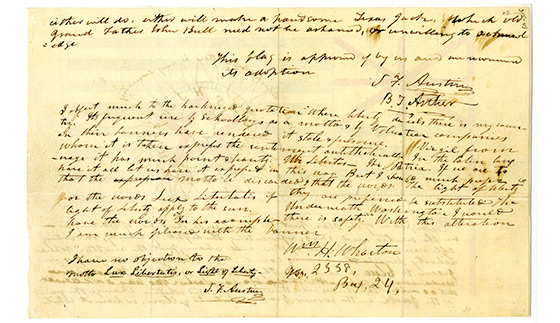 either will do. either will make a handsome Texas Jack, which old
Grand Father John Bull need not be ashamed, or unwilling to acknowl
edge
This flag is approved of by us and we recommend
its adoption
S. F. Austin
B. T. Archer
I object much to the hackneyed quotation "Where liberty dwells, there is my coun-
try. Its frequent use by Schoolboys as a motto & by Volunteer companies
on their banners have rendered it stale & irksome. Virgil from
whom it is taken expresses the sentiment
it has much point & beauty. Ubi Libertas Ibi Patria. If we are to
have it all let us have it expressed in this way. But I should much prefer
that the motto be discarded & that the words The light of liberty
or the words Lux Libertatis if they are preferred be substituted. The
light of liberty apply to the sun. Underneath Washington I would
have the words In his example there is safety. With this alteration
I am much pleased with the banner
Wm. H. Wharton
I have no objection to the
motto Lux Libertatis, or Light of Liberty
S. F. Austin
No. 2558,
Box, 24,